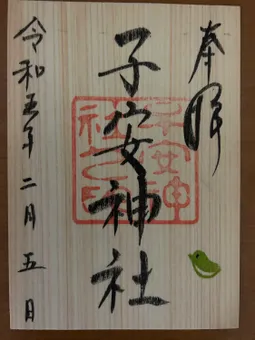 奉拝
子安神社
子安神社之印
令和五年二月五日